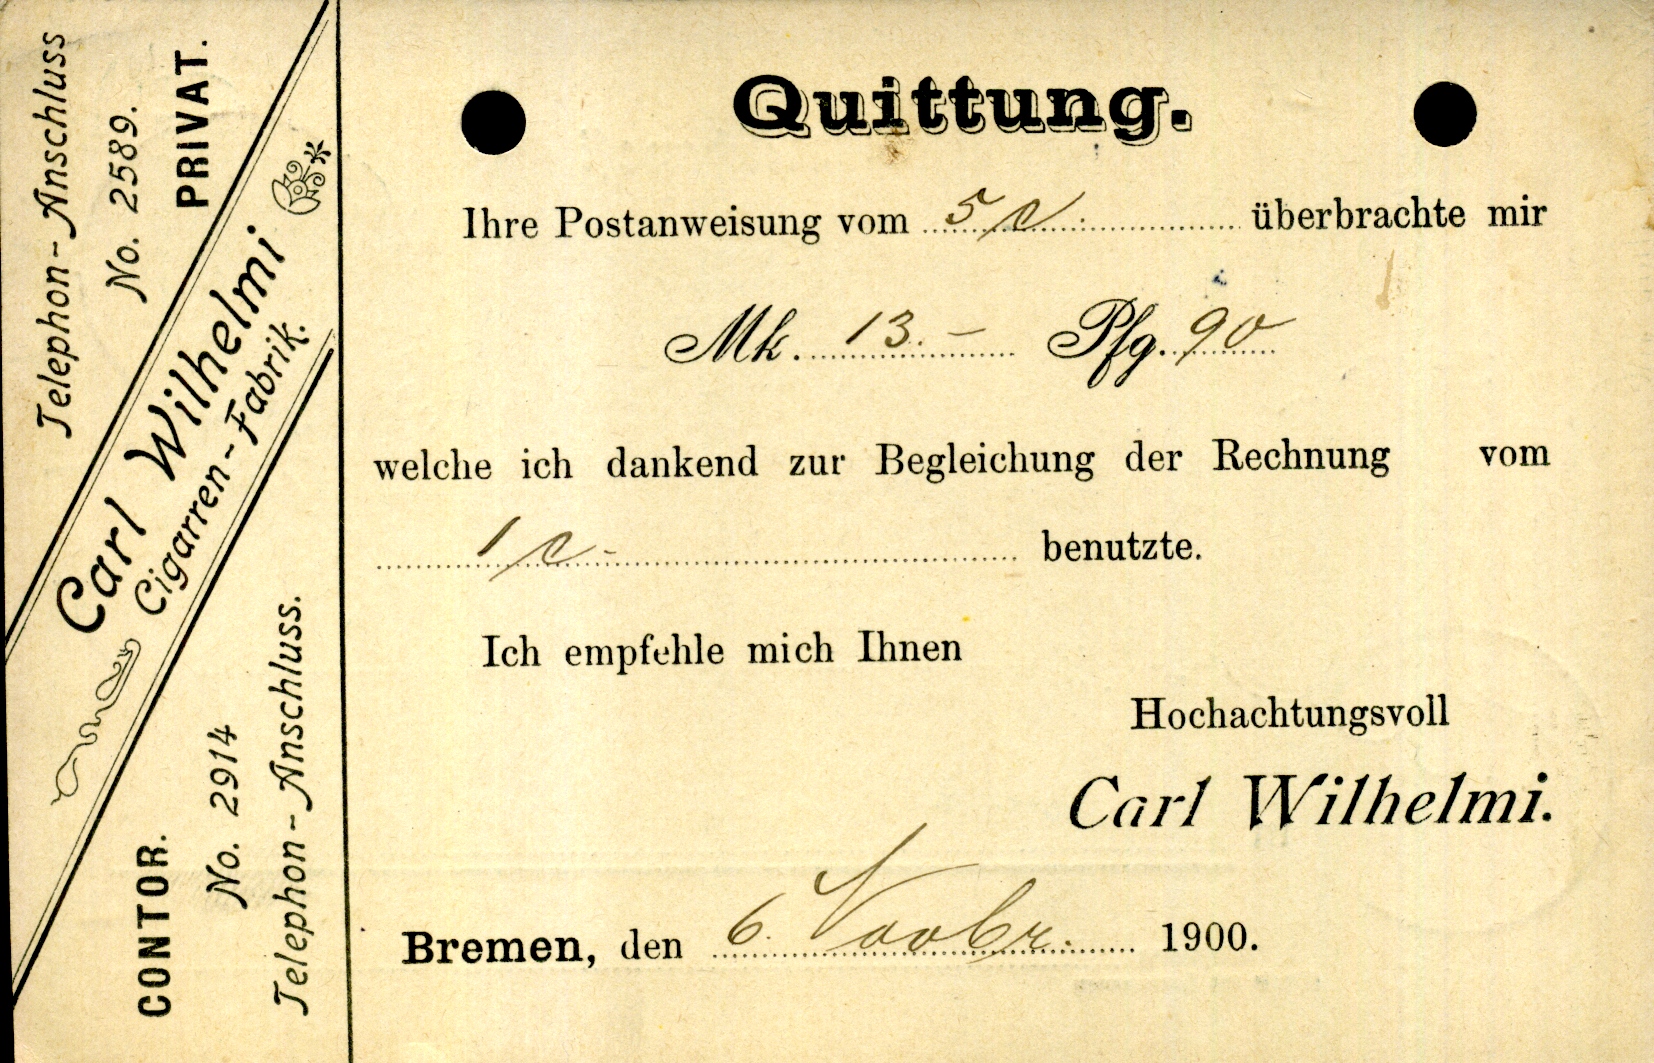 Telephon-Anschluss
No. 2589.
PRIVAT.
Carl Wilhelmi
Cigarren-Fabrik.
CONTOR.
No. 2914
Telephon-Anschluss.
Quittung.
Ihre Postanweisung vom 5/c. überbrachte mir
Mk. 13.- Pfg. 90
welche ich dankend zur Begleichung der Rechnung vom
1/c- benutzte.
Ich empfehle mich Ihnen
Hochachtungsvoll
Carl Wilhelmi.
Bremen, den 6. Novbr. 1900.